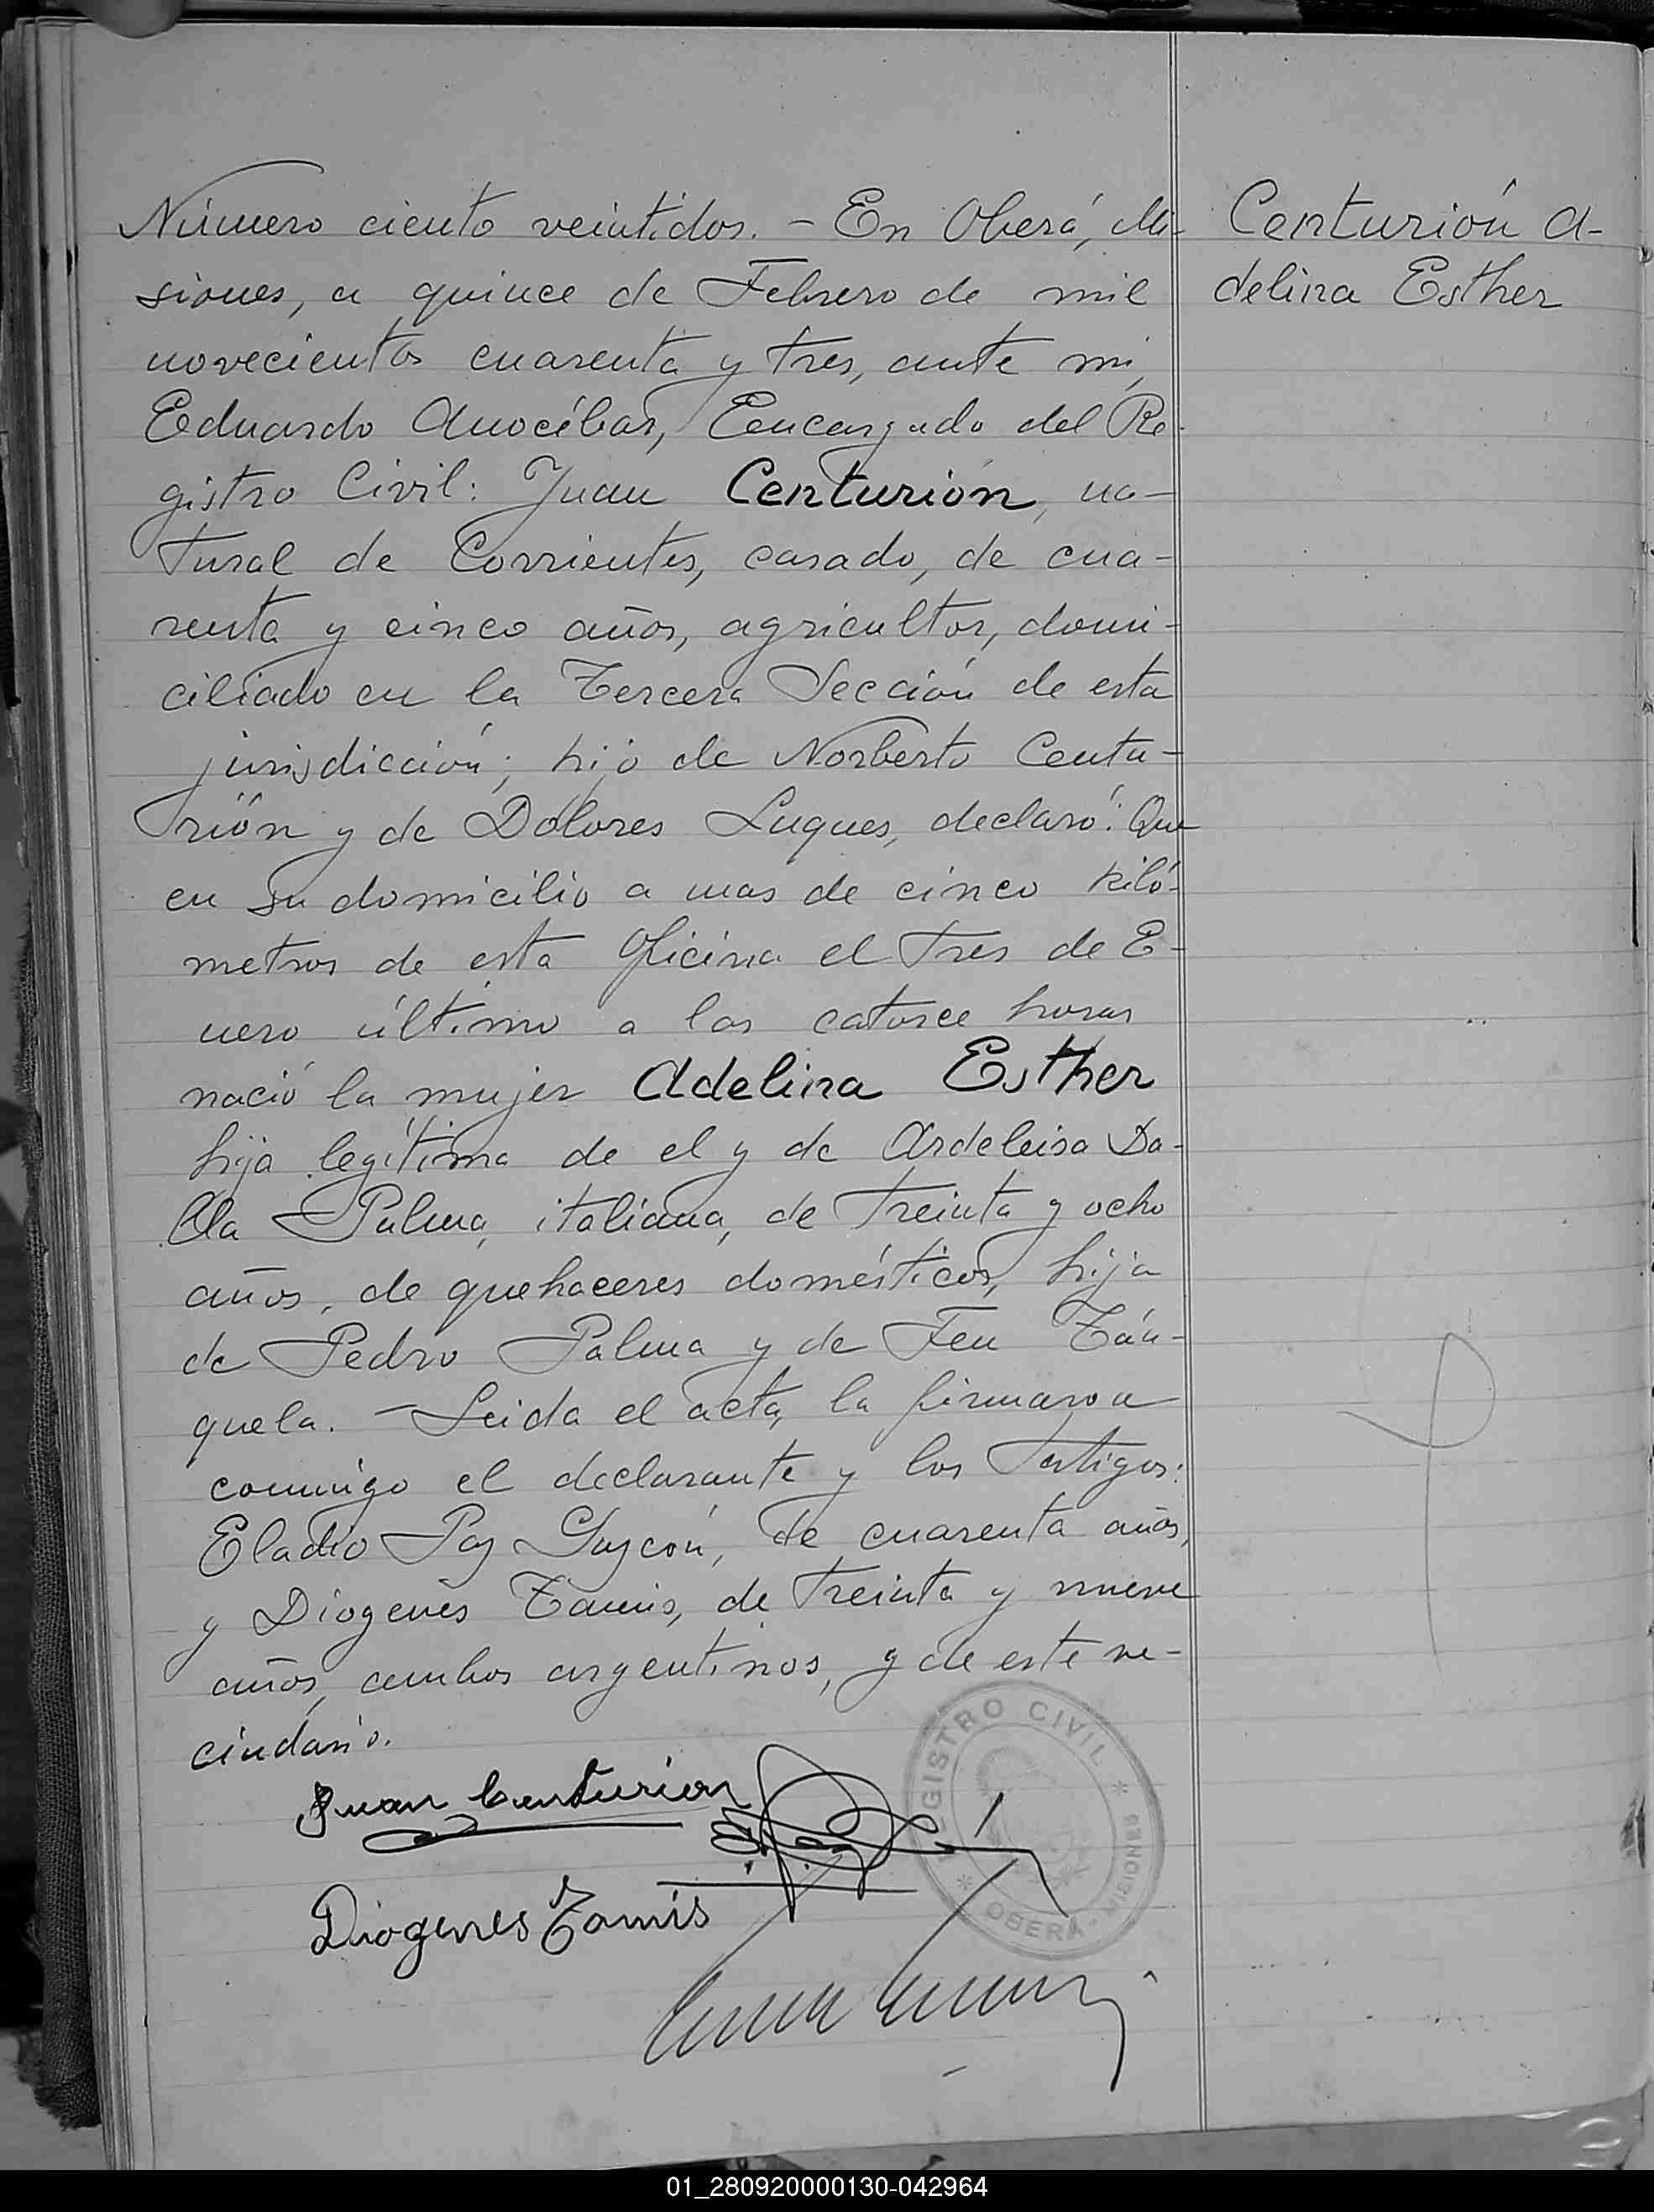 Número ciento veintidos. - En Oberá, Mi-
siones, a quince de Febrero de mil
novecientos cuarenta y tres, ante mi,
Eduardo Anocíbar, Eencargado del Re-
gistro Civil: Juan Centurión, na-
tural de Corrientes, casado, de cua-
renta y cinco años, agricultor, domi-
ciliado en la Tercera Sección de esta
jurisdicción; hijo de Norberto Centu-
rión y de Dolores Luques, declaró: Que
en su domicilio a mas de cinco kiló-
metros de esta Oficina el tres de E-
nero último a las catorce horas
nació la mujer Adelina Esther
hija legítima de el y de Ardeleisa Da-
lla Palma, italiana, de treinta y ocho
años, de quehaceres domésticos, hija
de Pedro Palma y de Feu Tán-
quela. - Leida el acta, la firmaron
conmigo el declarante y los testigos:
Eladio Paz Guzcón, de cuarenta años,
y Diogenes Tamis, de treinta y nueve
años, ambos argentinos, y de este ve-
cindario.
Centurión A-
delina Esther
Juan Centurion
Diogenes Tamis
REGISTRO CIVIL
OBERÁ - MISIONES
01_280920000130-042964